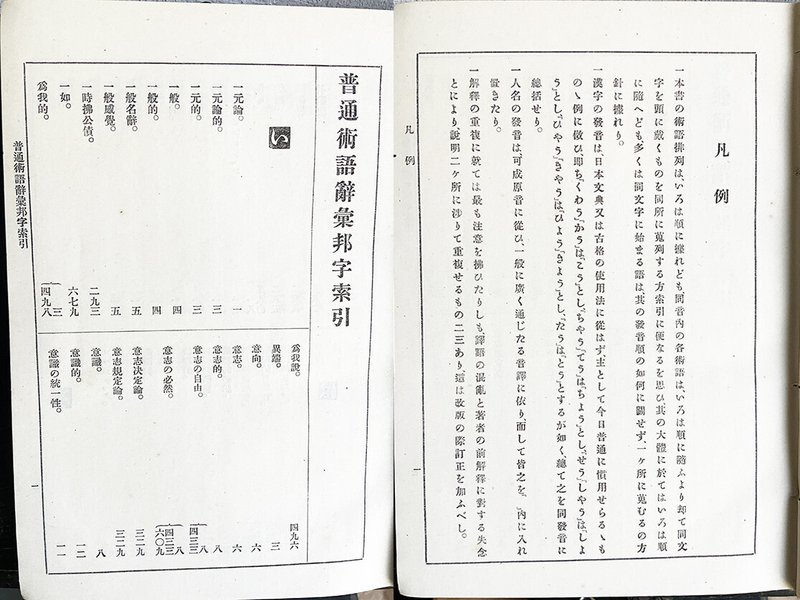 凡例
一本書の術語排列は、いろは順に據れども同音內の各術語は、いろは順に隨ふより却て同文
字を頭に戴くものを同所に蒐列する方索引に便なるを思ひ其の大體に於てはいろは順
に隨へども多くは同文字に始まる語は、其の發音順の如何に關せず、一ヶ所に蒐むるの方
針に據れり。
一漢字の發音は、日本文典又は古格の使用法に從はず、主として今日普通に慣用せらるゝも
のゝ例に倣ひ即ち「くわう」「かう」は、「こう」とし、「ちやう」「てう」は、「ちよう」とし、「せう」「しやう」は、「しよ
う」とし、「ひやう」「きやう」は、「ひよう」「きよう」とし、「たう」は、「とう」とするが如く、總て之を同發音に
總括せり。
一人名の發音は、可成原音に從ひ、一般に廣く通じたる音譯に依り、而して皆之を「」內に入れ
置きたり。
一解釋の重複に就ては最も注意を拂ひたりしも、譯語の混亂と著者の前解釋に對する失念
とにより說明二ヶ所に涉りて重複せるもの二三あり、這は改版の際訂正を加ふべし。
凡例
一
普通術語辭彙邦字索引
い
一元論。 一
一元論的。 三
一元的。 三
一般。 四
一般的。 四
一般名辭。 五
一般感覺。 五
一時拂公債。 二九三
一如。 六七九
爲我的。 三 四九八
爲我說。 四九六
異端。 三
意向。 六
意志。 六
意志的。 八
意志の自由。 八 四三三
意志の必然。 八 四三三 六〇九
意志決定論。 三二九
意志規定論。 三二九
意識。 八
意識的。 一二
意識の統一性。 一一
普通術語辭彙邦字索引
一